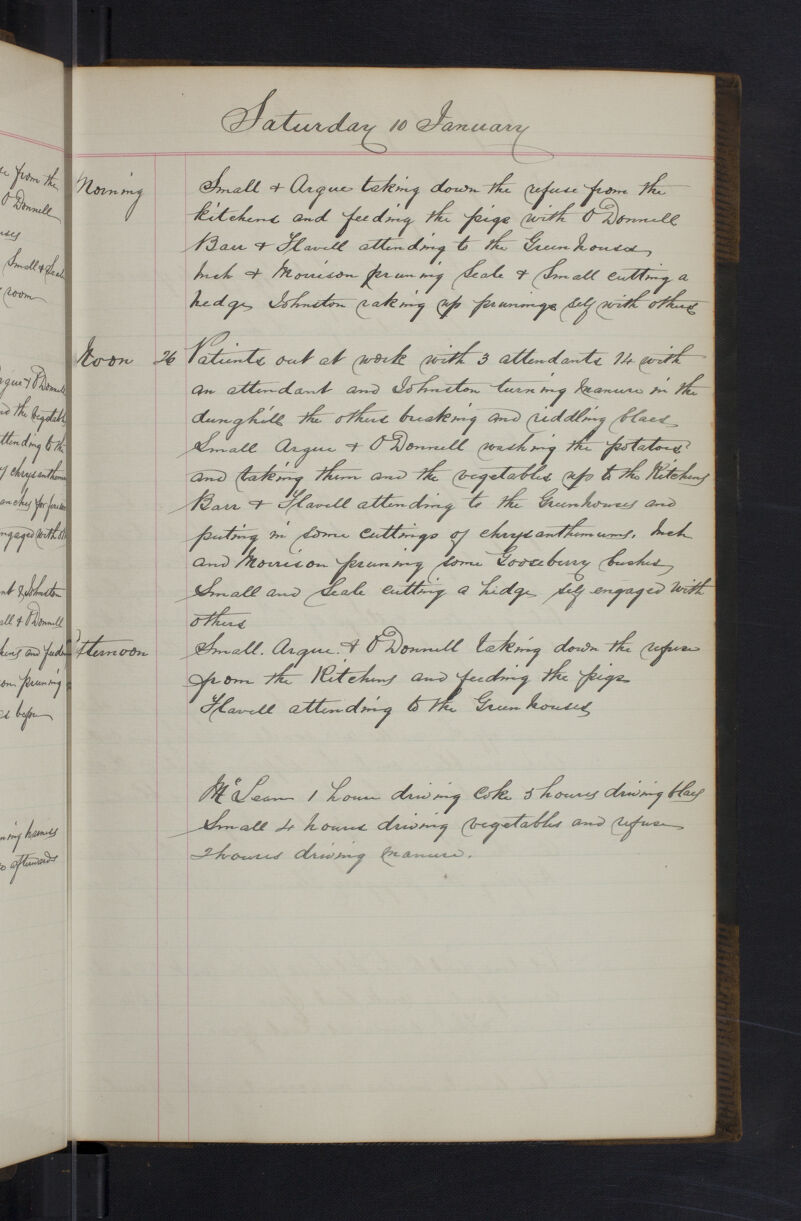 Saturday 10 January
Morning Small & Argue taking down the refuse from the
kitchens and feeding the pigs with O'Donnell
Barr & Flavell attending to the Greenhouses
Inch & Morrison pruning Seale & Small cutting a
hedge Johnston raking up prunings self with others
Noon 26 Patients out at work with 3 attendants 14 with
an attendant and Johnston turning manure in the
dunghill the others breaking and riddling blaes
Small Argue & O'Donnell washing the potatoes
and taking them and the vegetables up to the Kitchens
Barr & Flavell attending to the Greenhouses and
puting in some cuttings of chrysanthimums. Inch
and Morrison pruning some Gooseberry bushes
Small and Seale cutting a hedge self engaged with
others
Afternoon Small. Argue. & O'Donnell taking down the refuse
from the Kitchens and feeding the pigs
Flavell attending to the Green houses
McLean 1 hour driving Coke 5 hours driving blaes
Small 4 hours driving vegetables and refuse
2 hours driving manure.